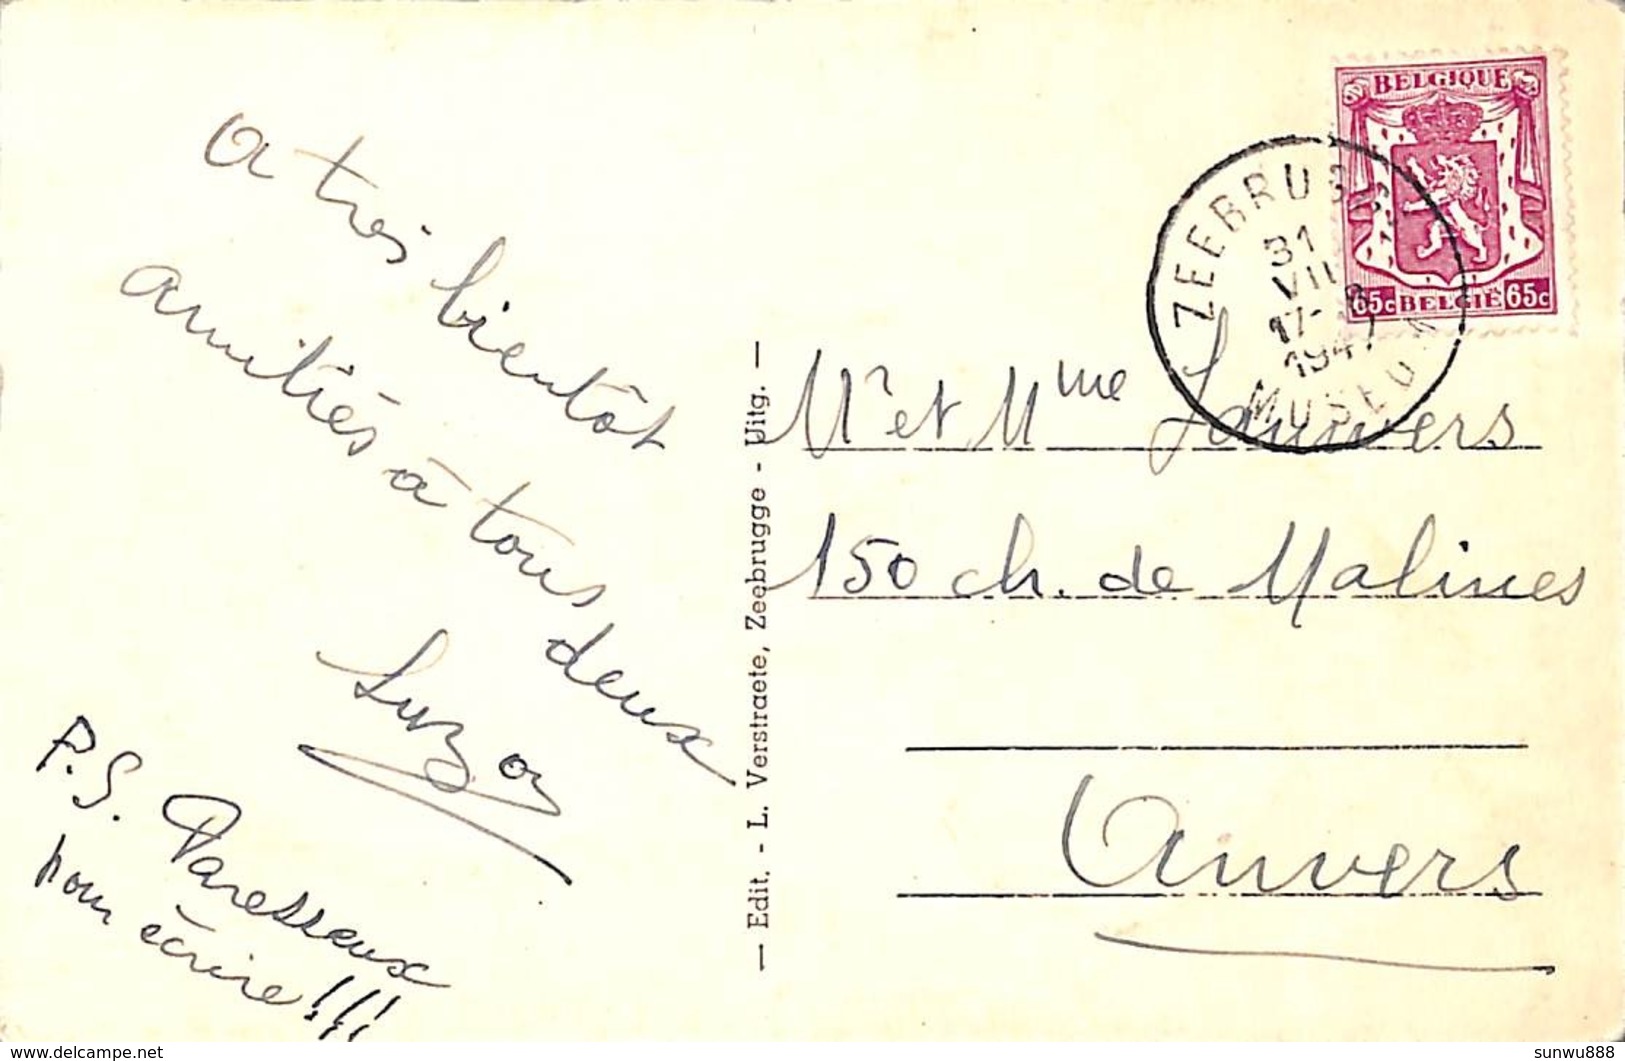 a tres bientôt
amitiés à tous deux
Suzy
P.S. Paresseux
pour écrire!!!
— Edit. - L. Verstraete, Zeebrugge - Uitg. —
BELGIQUE
65c BELGIË 65c
ZEEBRUGGE
31
VII
17-18
1947
MUSEUM
Mr et Mme Lauwers
150 ch. de Malines
Anvers
delcampe.net
sunwu888